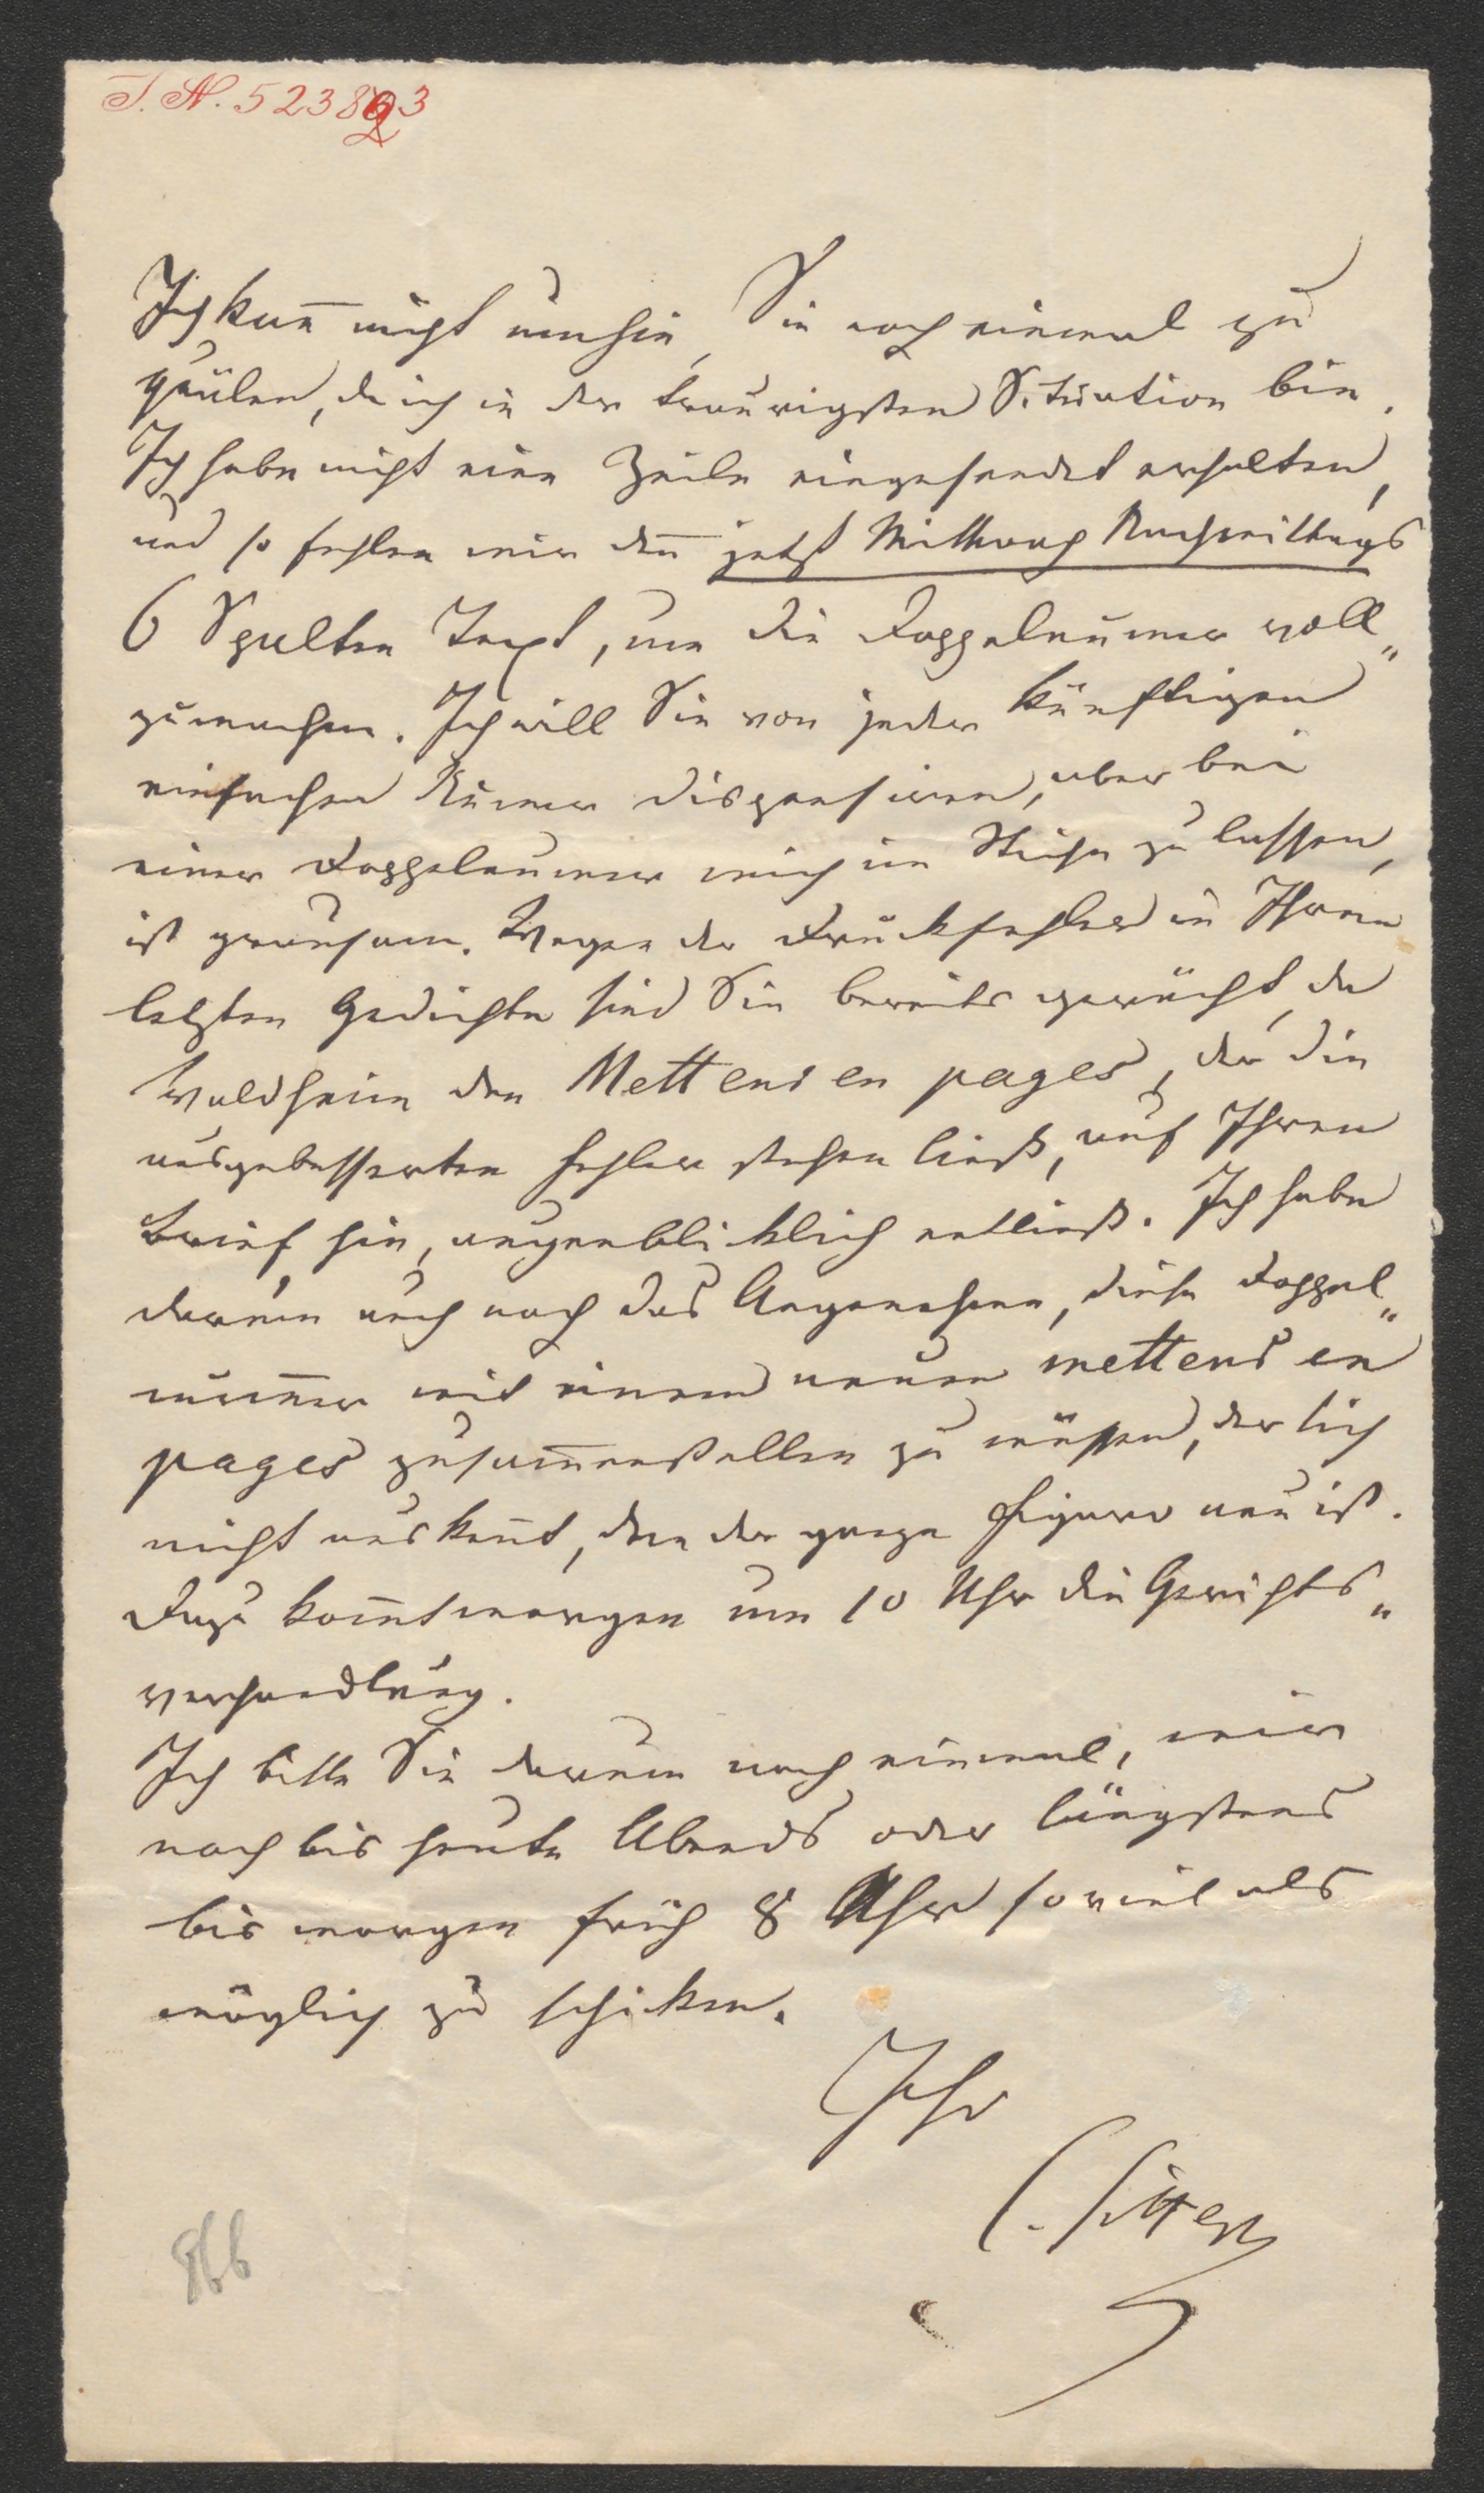 I. N. 523893
Ich kan̄ nicht umhin, Sie noch einmal zu
quälen, da ich in der traurigsten Situation bin.
Ich habe nicht eine Zeile eingesendet erhalten,
und so fehlen mir den̄ jetzt Mittwoch Nachmittags
6 Spalten Text, um die Doppelnum̄er voll„
zumachen. Ich will Sie von jeder künftigen
einfachen Num̄er dispensiren, aber bei
einer Doppelnum̄er mich im Stiche zu lassen,
ist grausam. Wegen der Druckfehler in Ihrem
letzten Gedichte sind Sie bereits gerächt, da
Waldheim den Mettend en pages, der die
ausgebesserten Fehler stehen ließ, auf Ihren
Brief hin, augenblicklich entließ. Ich habe
darum auch noch das Angenehme, diese Doppel„
num̄er mit einem neuen mettend en
pages zusam̄enstellen zu müssen, der sich
nicht auskent̄, dem der ganze Figaro neu ist.
Dazu kom̄t morgen um 10 Uhr die Gerichts„
verhandlung.
Ich bitte Sie darum noch einmal, mir
noch bis heute Abends oder längstens
bis morgen früh 8 Uhr soviel als
möglich zu schicken.
Ihr
C. Sitter